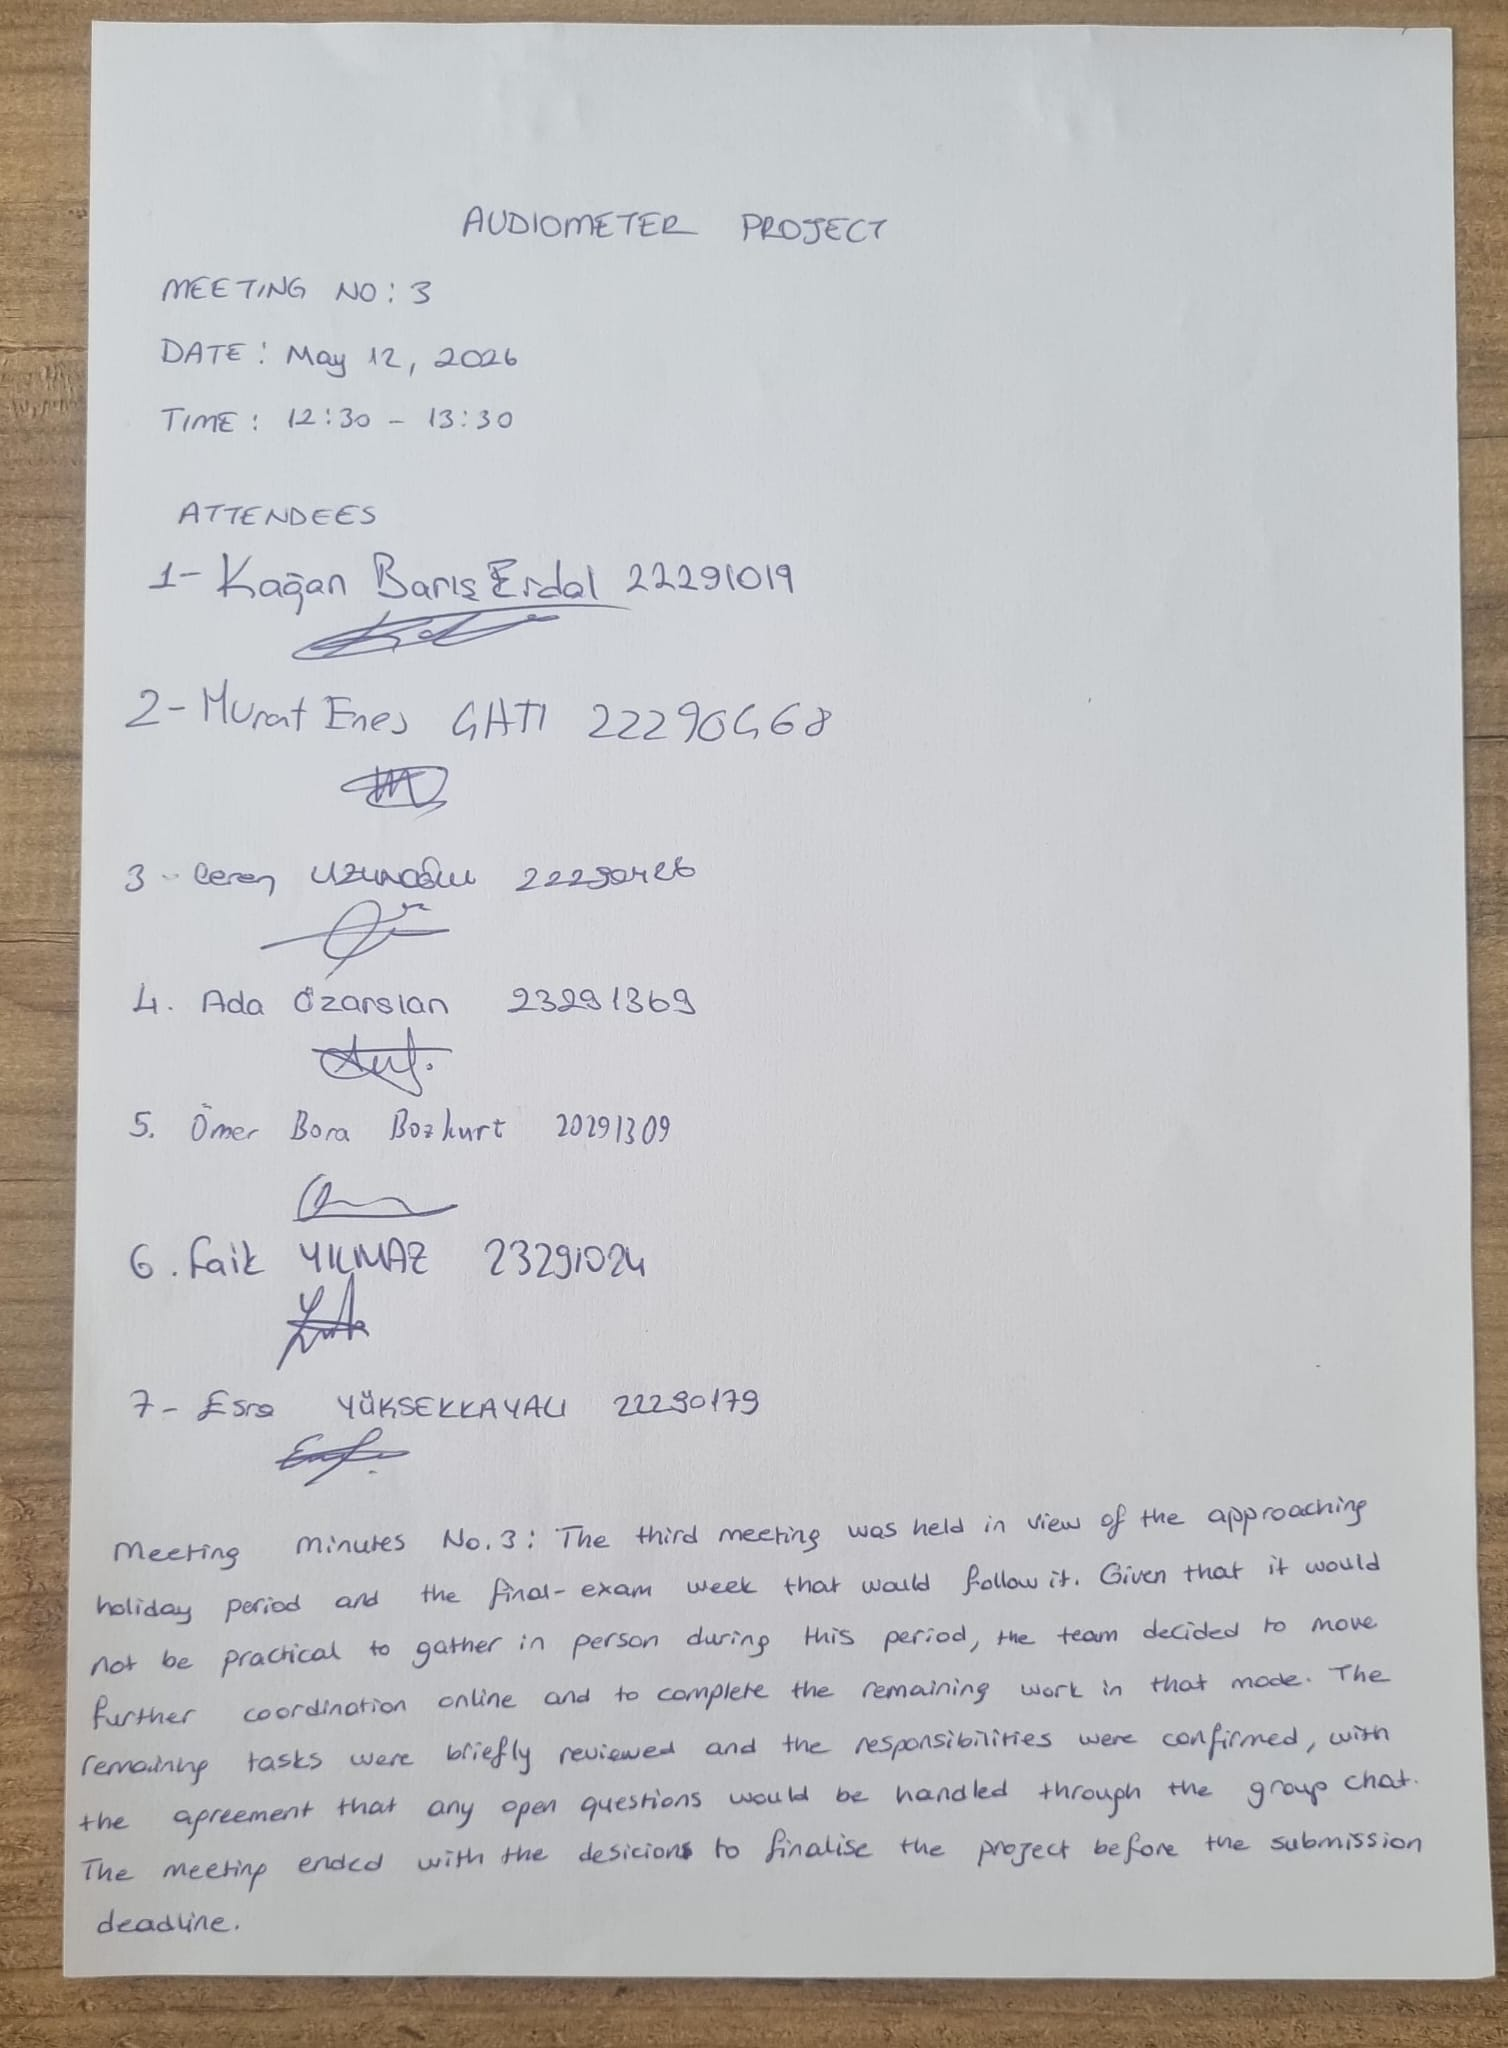 AUDIOMETER PROJECT
MEETING NO: 3
DATE: May 12, 2026
TIME: 12:30 - 13:30
ATTENDEES
1- Kağan Barış Erdal 22291019
2- Murat Enes ÇATI 22290468
3- Ceren UZUNOĞLU 22290426
4. Ada Özarslan 23291369
5. Ömer Bora Bozkurt 20291309
6. Faik YILMAZ 23291024
7- Esra YÜKSEKKAYALI 22290179
Meeting Minutes No.3: The third meeting was held in view of the approaching
holiday period and the final-exam week that would follow it. Given that it would
not be practical to gather in person during this period, the team decided to move
further coordination online and to complete the remaining work in that mode. The
remaining tasks were briefly reviewed and the responsibilities were confirmed, with
the agreement that any open questions would be handled through the group chat.
The meeting ended with the desicions to finalise the project before the submission
deadline.